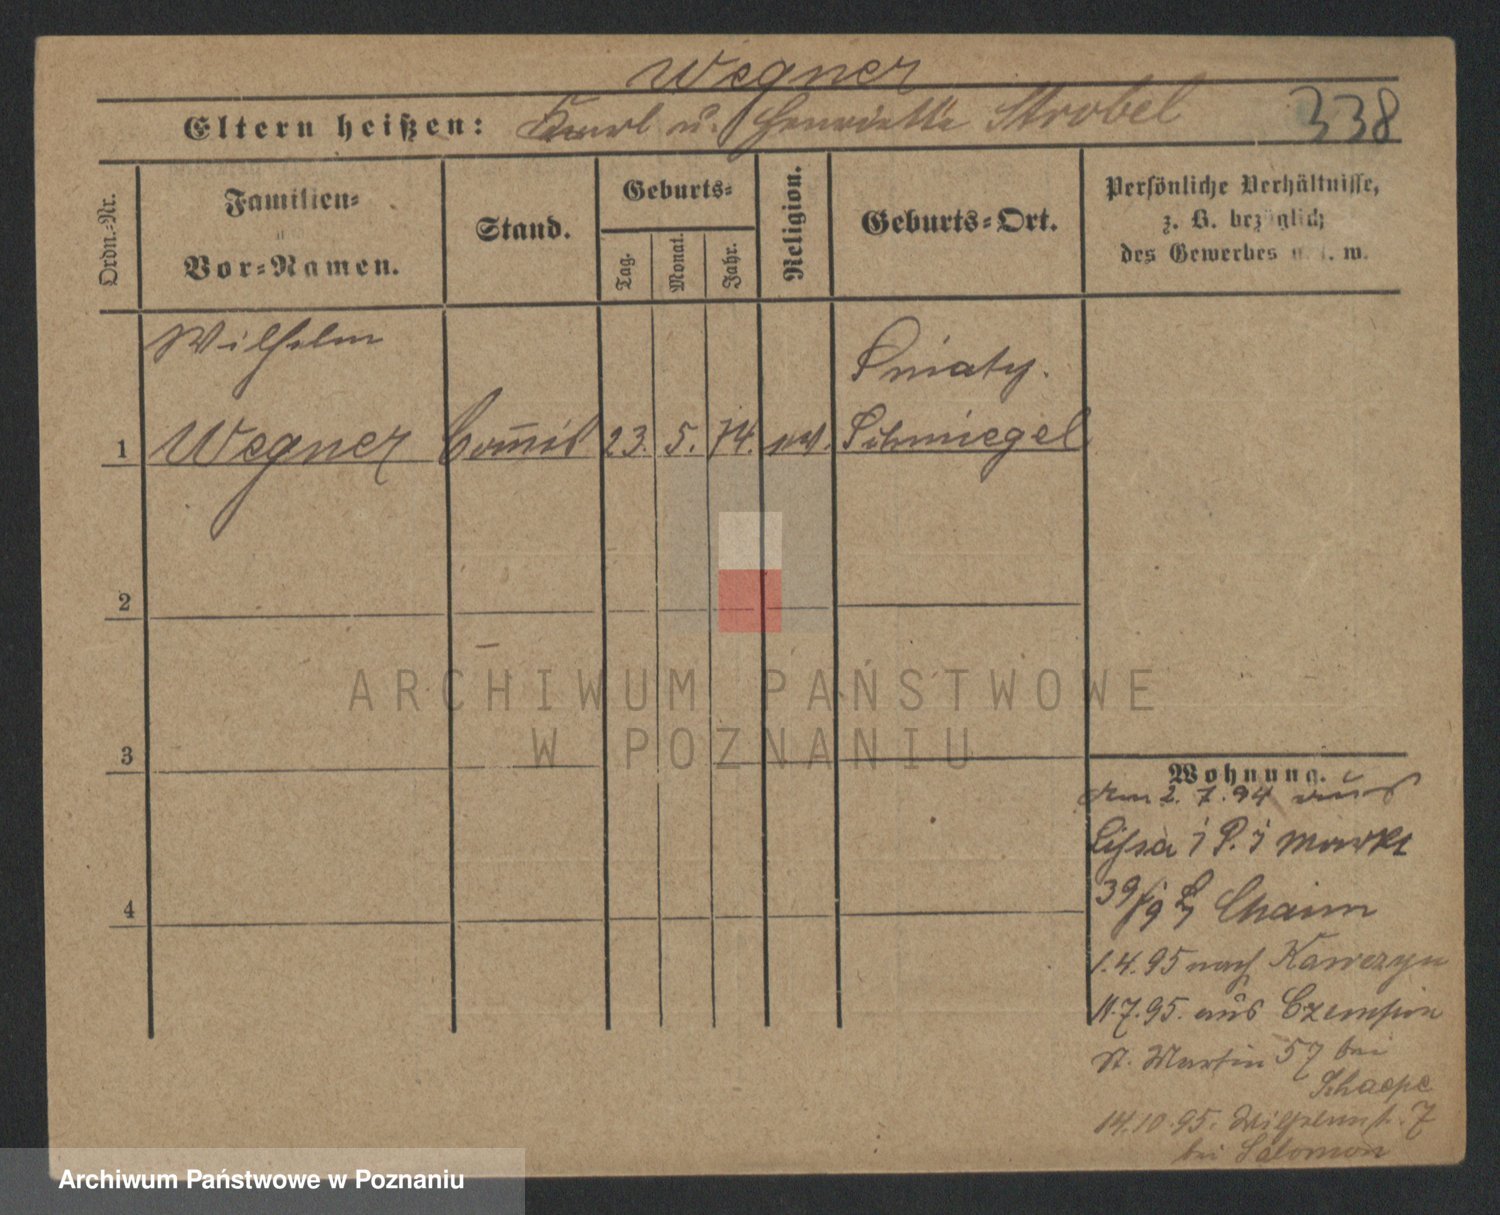 Wegner
Eltern heißen: Karl u. Henriette Strobel
338
Ordn.-Nr.
Familien-
u
Vor-Namen.
Stand.
Geburts-
Tag.
Monat.
Jahr.
Religion.
Geburts-Ort.
Persönliche Verhältnisse,
z. B. bezüglich
des Gewerbes u. s. w.
Wilhelm
Sniaty.
1 Wegner Commis 23. 5. 74. ev. Schmiegel
2
3
4
Wohnung.
den 2. 7. 94 aus
Lissa i P. Markt
39 Chaim
1.4.95 nach Kawczyn
11.7.95. aus Czempin
St. Martin 57 bei
Schaepe
14.10.95. Wilhelmst. 7
bei Salomon
ARCHIWUM PAŃSTWOWE
W POZNANIU
Archiwum Państwowe w Poznaniu